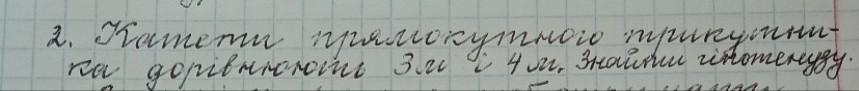 2. Катети прямокутного трикутни-
ка дорівнюють 3м і 4м. Знайти гіпотенузу.